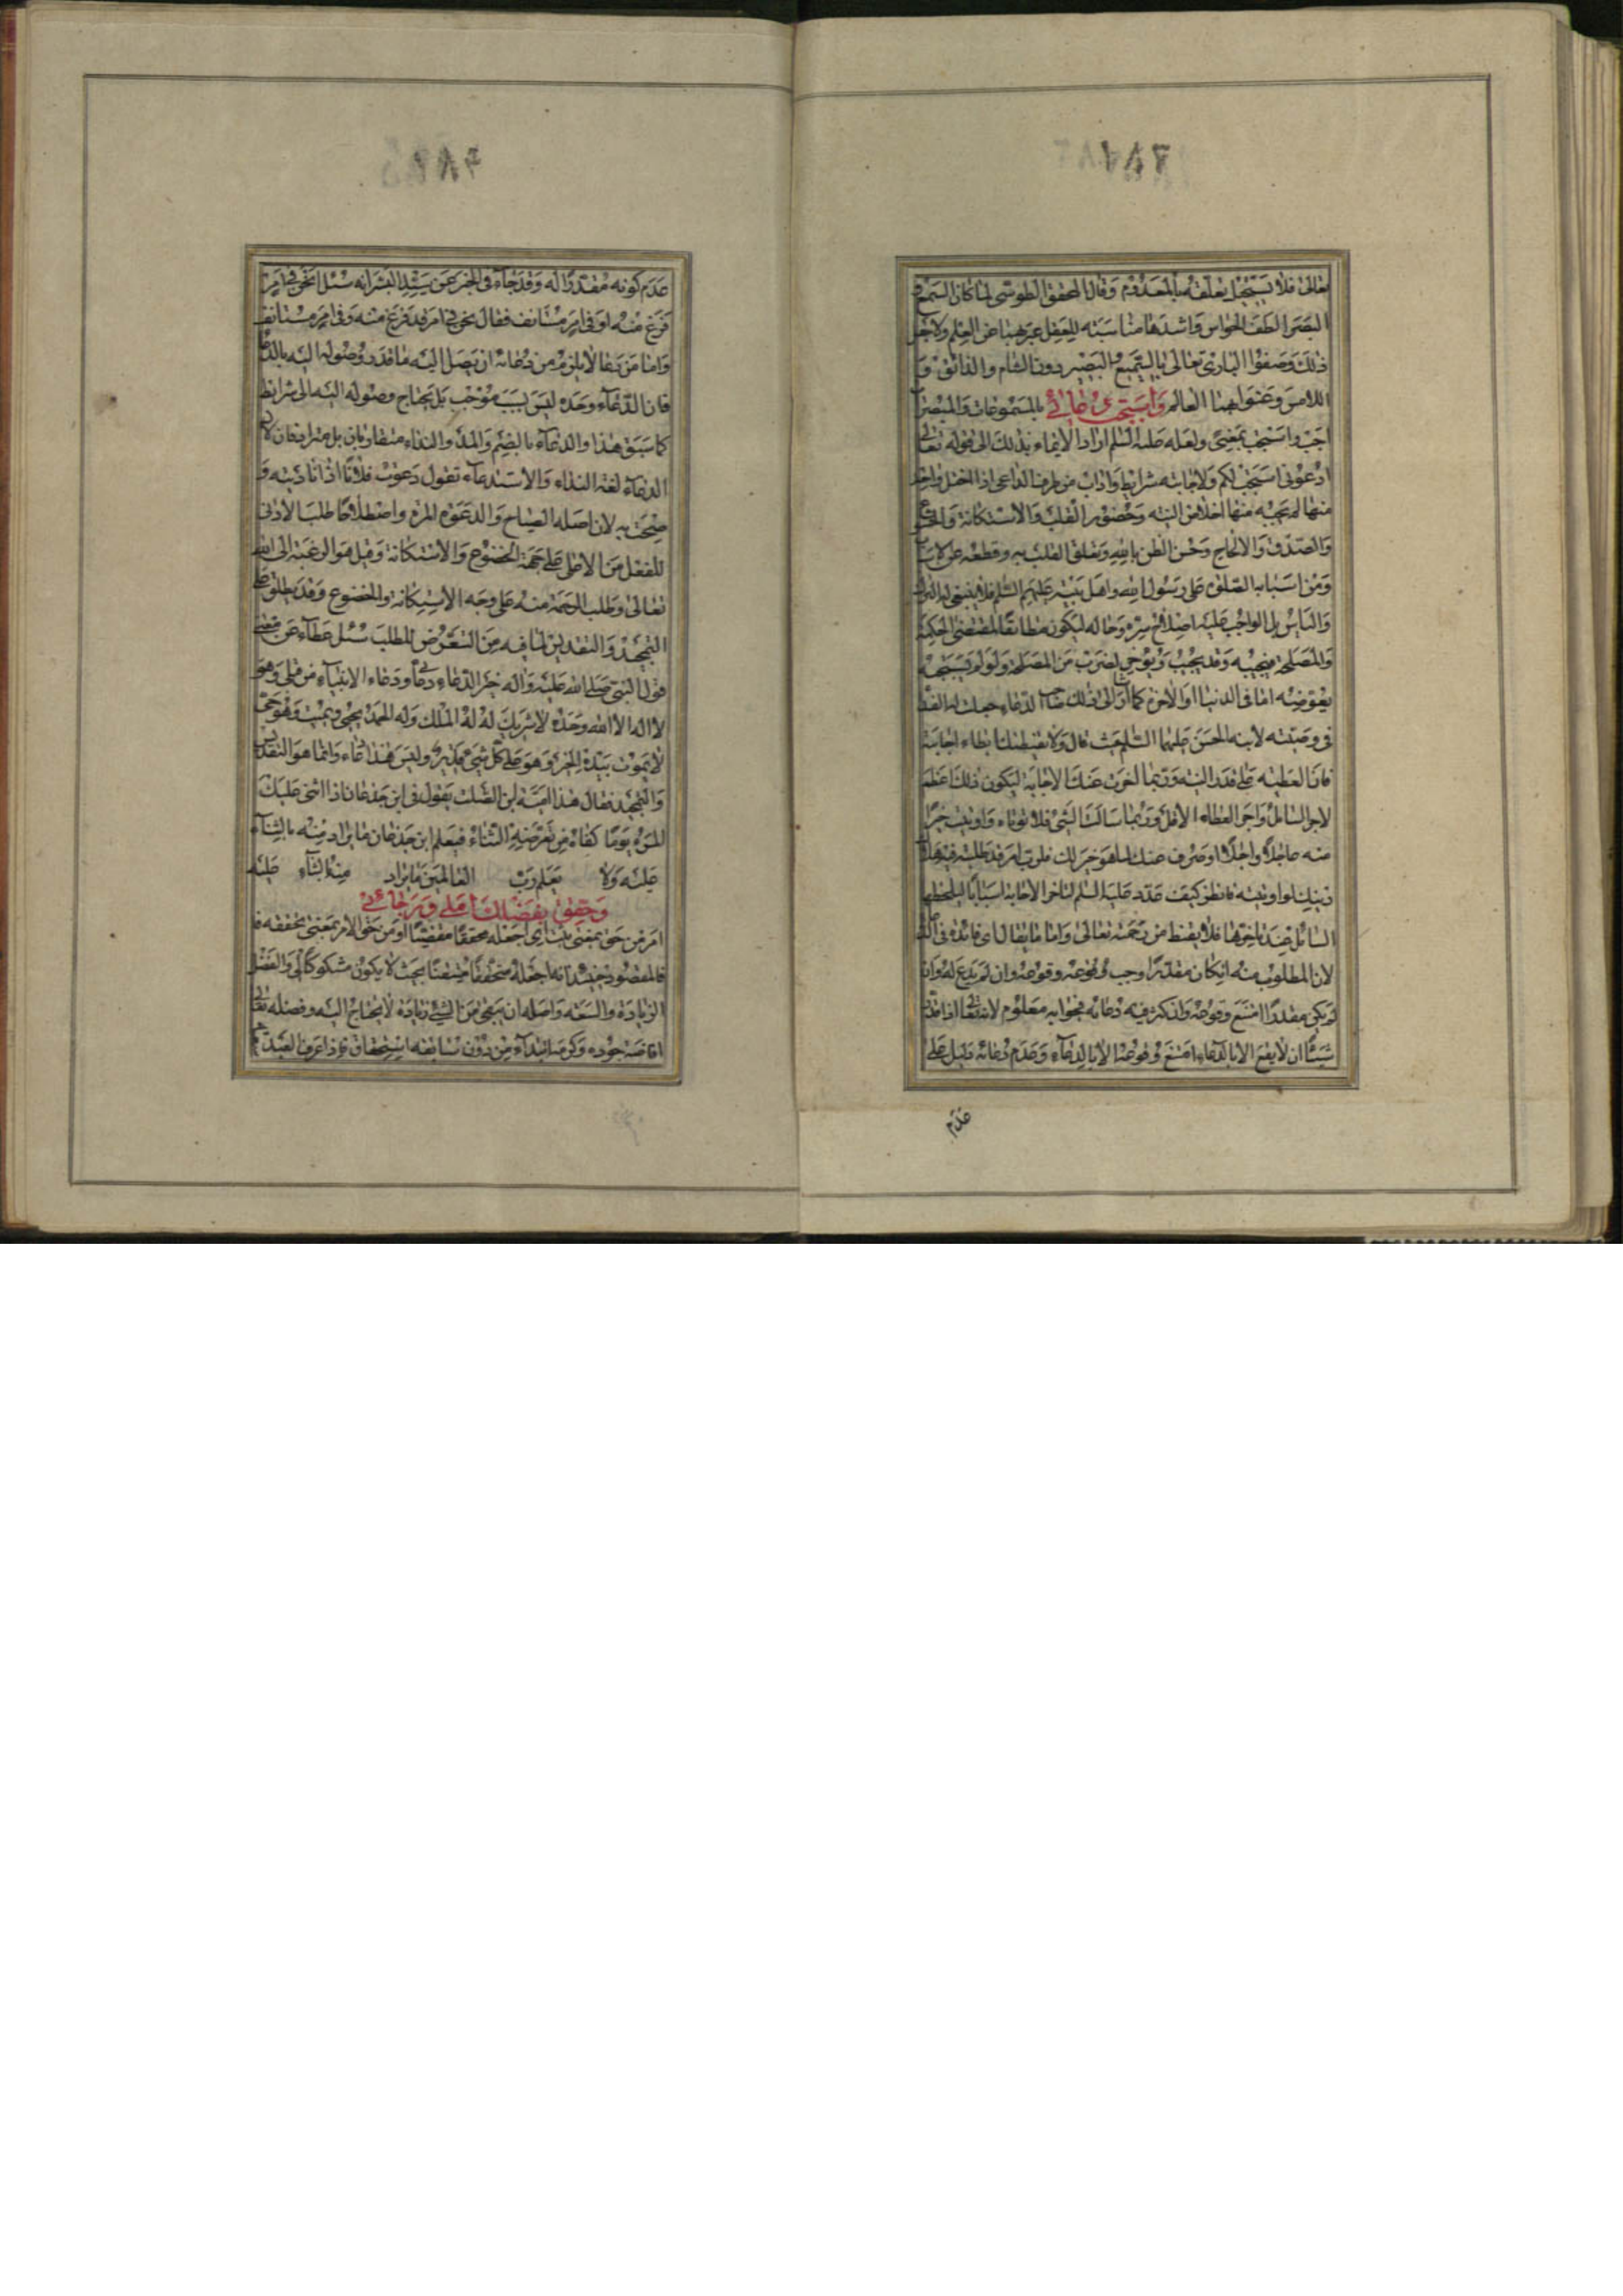 تعالى فلا يستحيل تعلقه بالمعدوم وقال المحقق الطوسي لما كان السمع و
البصر الطف الحواس واشدها مناسبة للعقل عبر بهما عن العلم ولاجل
ذلك وصفوا البارى تعالى بالسميع البصير دون الشام والذائق و
اللامس وعنوا بهما العالم بالمسموعات والمبصرات واستجب دعائي
اجب واستجب بمعنى ولعله عليه السلم اراد الايماء بذلك الى قوله تعالى
ادعوني استجب لكم ولاجابته شرايط واداب من طرف الداعى اذا اختل واحد
منها لم يجبه منها اخلاص النية وحضور القلب والاستكانة والخضوع
والصدق والالحاح وحسن الظن بالله وتعلق القلب به وقطعه عن الاسباب
ومن اسبابه الصلوة على رسول الله واهل بيته عليهم السلم فلا ينبغى له
والياس بل الواجب عليه اصلاح سره وحاله ليكون مطابقا لمقتضى الحكمة
والمصلحة فيجيبه وقد يجيب ويؤخر لضرب من المصلحة ولو لم يستجبه
يعوضه اما في الدنيا او الاخرة كما اولى ذلك
في وصيته لابنه الحسن عليهما السلم حيث قال ولا يقنطنك ابطاء اجابته
فان العطية على قدر النية وربما اخرت عنك الاجابة ليكون ذلك اعظم
لاجر السائل واجزل لعطاء الامل وربما سالت الشئ فلا تؤتاه واوتيت خيرا
منه عاجلا واجلا او صرف عنك لما هو خير لك فلرب امر قد طلبته فيه هلاك
دينك لو اوتيته فانظر كيف عدد عليه السلم لتاخر الاجابة اسبابا ليلحظها
السائل عند تاخرها فلا يقنط من رحمة تعالى واما ما يقال اى فائدة في الدعاء
لان المطلوب منه ان كان مقدرا وجب وقوعه وان لم يدع له وان
لم يكن مقدرا امتنع وقوعه ولذكر فيه دعائه فجوابه معلوم لانه تعالى اذا قدر
شيئا ان لا يقع الا بالدعاء امتنع وقوعه الا بالدعاء وعدم دعائه دليل على
عدم
عدم كونه مقدرا له وقد جاء في الخبر عن سيد البشر انه سئل انحن في امر
فرغ منه او في امر مستانف فقال نحن في امر قد فرغ منه وفي امر مستانف
واما من دعا لا يلزم من دعائه ان يصل اليه ما قدر وصوله اليه بالدعاء
فان الدعاء وحده ليس بسبب موجب بل يحتاج وصوله اليه الى شرايط
كما سبق هذا والدعاء بالضم والمد والنداء متقاربان بل مترادفان لان
الدعاء لغة النداء والاستدعاء تقول دعوت فلانا اذا ناديته و
صحت به لان اصله الصياح والدعوة المرة واصطلاحا طلب الادنى
للفعل من الاعلى على جهة الخضوع والاستكانة وقيل هو الرغبة الى الله
تعالى وطلب الرحمة منه على وجه الاستكانة والخضوع وقد يطلق على
التمجيد والتقديس لما فيه من التعرض للطلب سئل عطاء عن معنى
قول النبي صلى الله عليه واله خير الدعاء دعائي ودعاء الانبياء من قبلى وهو
لا اله الا الله وحده لا شريك له له الملك وله الحمد يحيى ويميت وهو حى
لا يموت بيده الخير وهو على كل شىء قدير وليس هذا دعاء وانما هو التقديس
والتمجيد فقال هذا امية بن الصلت يقول في ابن جدعان اذا اثنى عليك
المرء يوما كفاه من تعرضه الثناء فيعلم ابن جدعان ما يراد منه بالثناء
عليه ولا يعلم رب العالمين ما يراد منه بالثناء عليه
وحقق بفضلك املي ورجائي
امر من حق بمعنى ثبت اى اجعله محققا او من حق الامر بمعنى تحققه
فالمقصود حينئذ انه اجعله متحققا متيقنا بحيث لا يكون مشكوكا لى والفضل
الزيادة والسعة واصله ان يبقى من الشئ زيادة لا يحتاج اليه وفضله تعالى
افاضة جوده وكرمه ابتداء من دون سابقة استحقاق فاذا عرف العبد